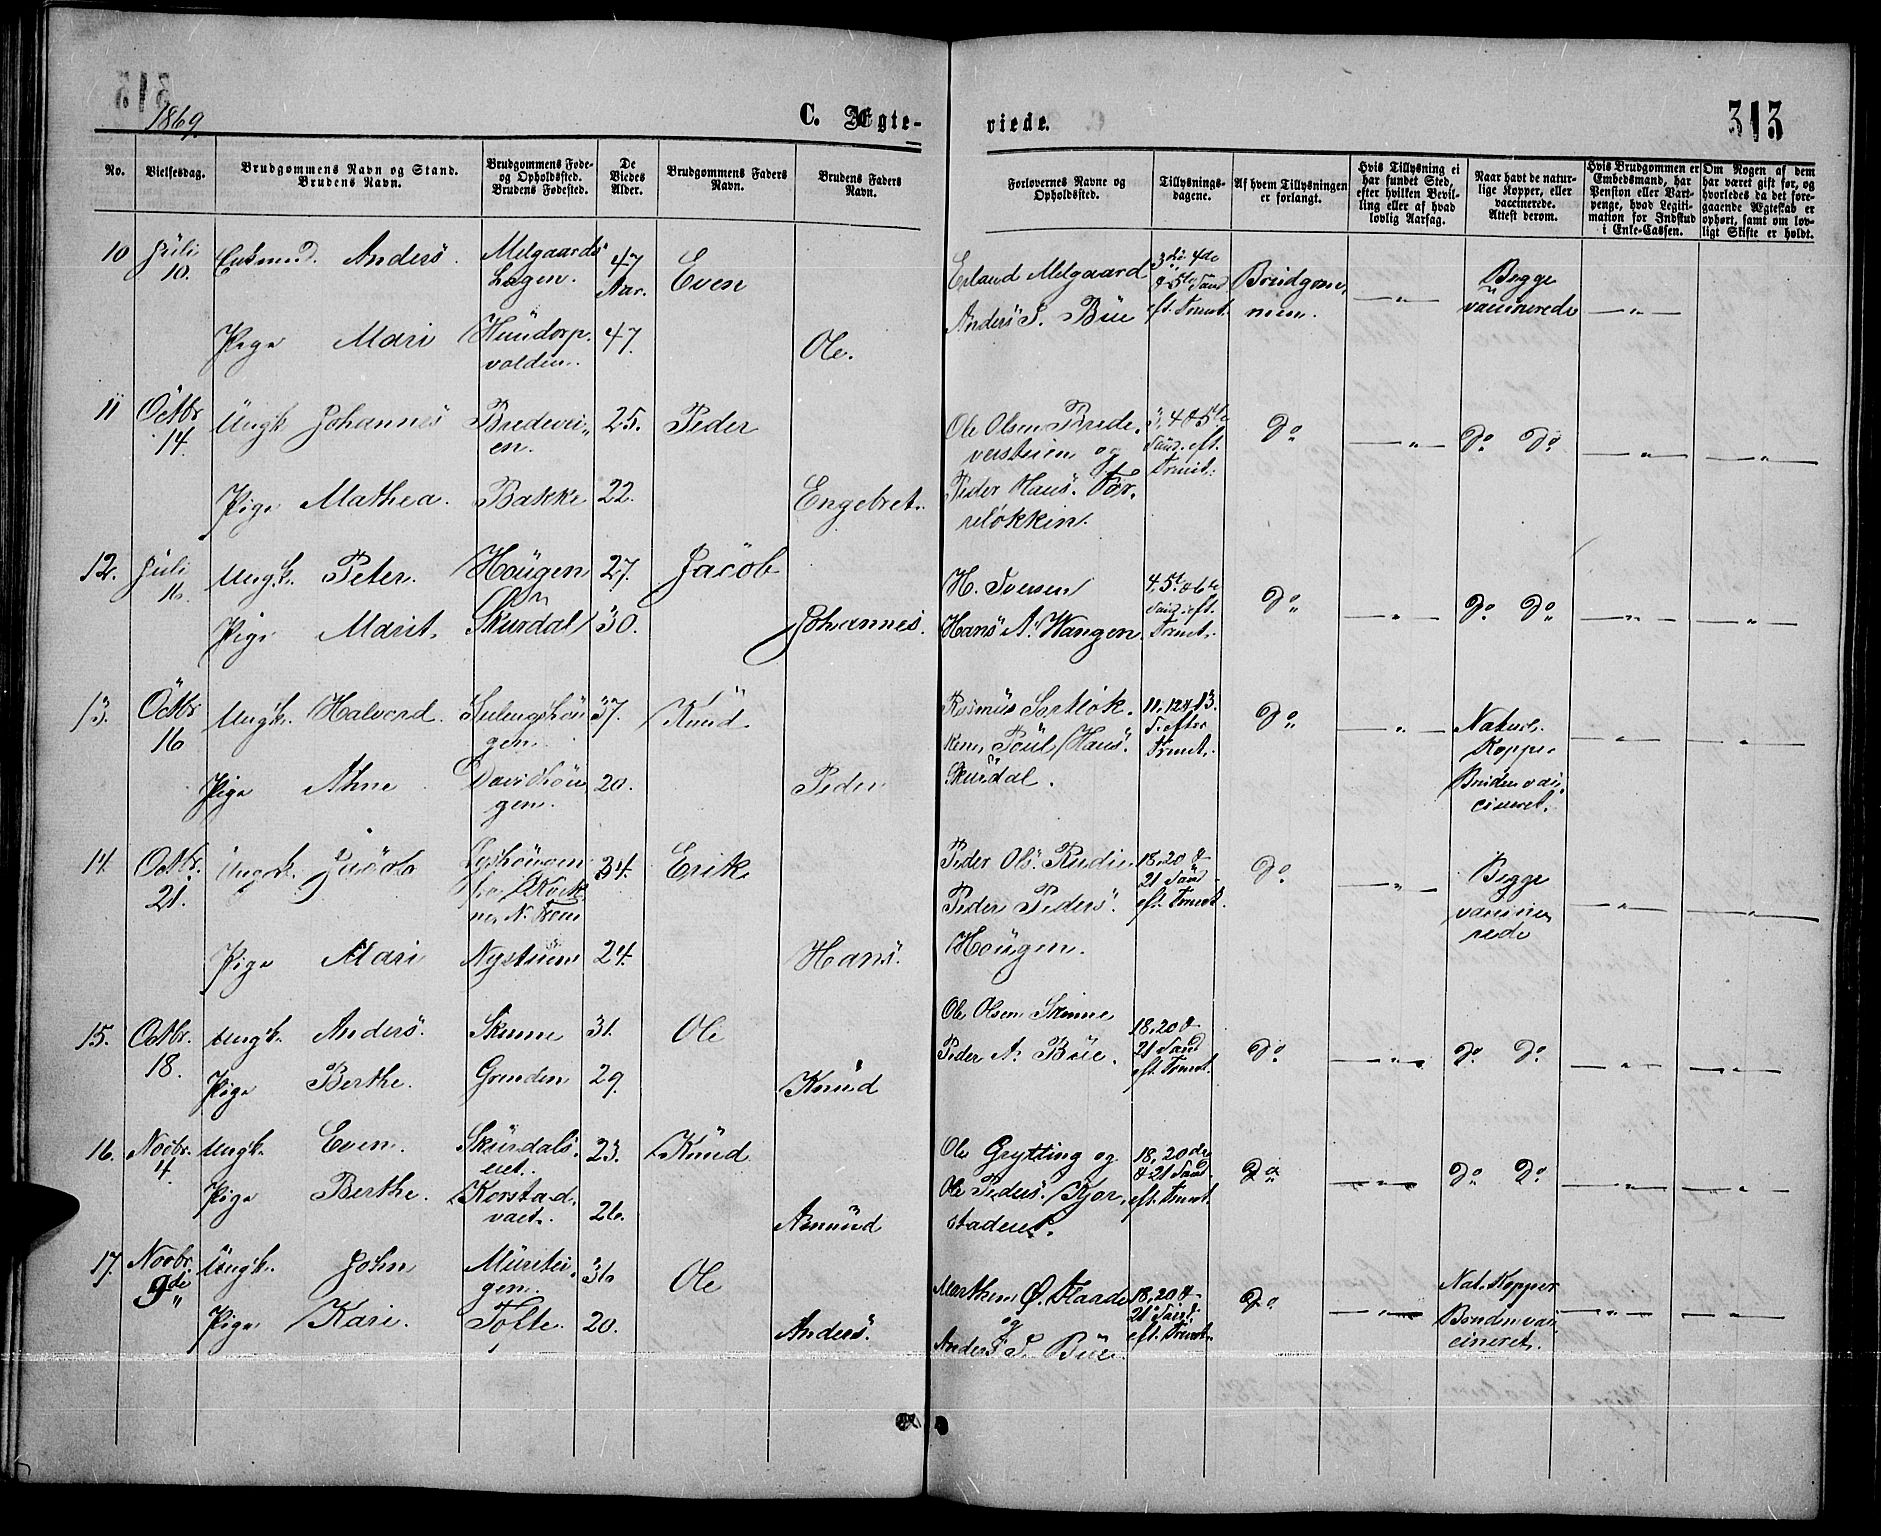 1869.
C. Ægte-
viede.
313
No.
Vielsesdag.
Brudgommens Navn og Stand.
Brudens Navn.
Brudgommens Føde-
og Opholdssted.
Brudens Fødested.
De
Viedes
Alder.
Brudgommens Faders
Navn.
Brudens Faders
Navn.
Forlovernes Navne og
Opholdssted.
Tillysnings-
dagene.
Af hvem Tillysningen
er forlangt.
Hvis Tillysning ei
har fundet Sted,
efter hvilken Bevil-
ling eller af hvad
lovlig Aarsag.
Naar havt de natur-
lige Kopper, eller
vaccinerede.
Attest derom.
Hvis Brudgommen er
Embedsmand, har
Pension eller Vart-
penge, hvad Legiti-
mation for Indskud
i Enke-Cassen.
Om Nogen af dem
har været gift før, og
hvorledes da det fore-
gaaende Ægteskab er
ophørt, samt om lov-
ligt Skifte er holdt.
10 Juli 10. Anders. Melgaards Løgen. 47 Aar. Even
Erland Melgaard Anders S. Büe 3die 4de & 5te Sønd eft. Trinit. Brudgom men. — " — Begge vaccinerede — " —
Pige Mari Hundorp volden. 47. Ole.
11 Octbr. 14. Ungk. Johannes Bredevei en. 25. Peder
Ole Olsen Brede veistuen og Peder Hans. 4 & 5te Sønd. eft. Trinit. Do — " — Do Do — " — — " —
Pige Mathea. Bakke 22. Engebret.
12. Juli 16. Ungk. Peter. Hougen 27. Jacob
H. Iversen Hans A. Wangen 4, 5te & 6te Sønd. eft. Trinit. Do — " — Do Do — " — — " —
Pige Marit. Skurdal 30. Johannes.
13. Octbr. 16 Ungk. Halvord. 37. Knud
Rasmus Poul Hans. Skurdal. 11, 12 & 13. S. efter Trinit. Do — " — Naturl. Kopper Bruden vac cineret. — " — — " —
Pige Ahne 20. Peder
14. Octbr. 21. Ungk. Jacob 34. Erik
Peder Ols. Rudi Peder Peders. Hougen. 18, 20 & 21 Sønd eft. Trinit. Do — " — Begge vaccine rede — " — — " —
Pige Mari Nystuen 24. Hans.
15. Octbr. 18. Ungk. Anders. Skinne 31. Ole
Ole Olsen Skinne Peder A. Büe. 18, 20 & 21 Sønd eft. Trinit. Do — " — Do Do — " — — " —
Pige Berthe. Grinden 29. Knud
16. Novbr. 4. Ungk. Even. Skurdals eiet. 23. Knud
Ole Grytting og Ole Peders. Kjor stadeiet. 18, 20de & 21 Sønd eft. Trinit. Do — " — Do Do — " — — " —
Pige Berthe. 26. Amund
17. Novbr. 9de Ungk. John 36 Ole
Ø. Flaade og Anders S. Büe. 18, 20 & 21 Sønd. eft. Trinit. Do — " — Nat. Kopper Bruden vac cineret. — " — — " —
Pige Kari. Tofte 20. Anders.